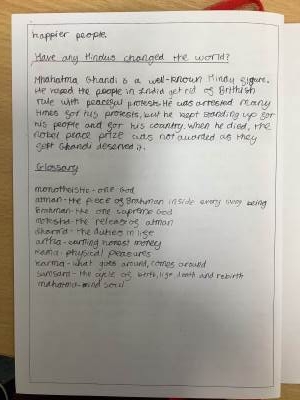 happier people.
Have any Hindus changed the world?
Mhahatma Ghandi is a well-known Hindu figure.
He helped the people in India get rid of Brithish
rule with peaceful protests. He was arrested many
times for his protests, but he kept standing up for
his people and for his country. When he died, the
nobel peace prize was not awarded as they
felt Ghandi deserved it.
Glossary
monotheistic - one God
atman - the piece of Brahman inside every living being
Brahman - the one supreme God
moksha - the release of atman
dharma - the duties in life
artha - earning honest money
kama - physical pleasures
karma - what goes around, comes around
samsara - the cycle of birth, life, death and rebirth
mahatma - kind soul